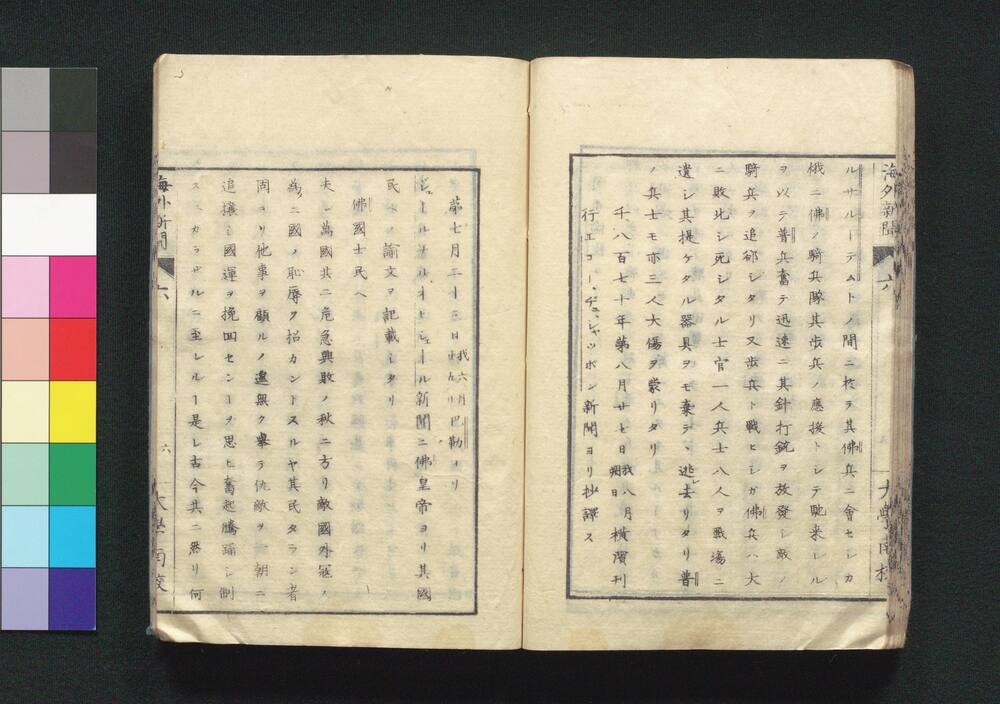 海外新聞
六
大學南校
ルサルーテムトノ間ニ於テ其佛兵ニ會セシカ
俄ニ佛ノ騎兵隊其歩兵ノ應援トシテ馳来レル
ヲ以テ普兵奮テ迅速ニ其針打銃ヲ放發シ敵ノ
騎兵ヲ追郤シタリ又歩兵ト戰ヒシガ佛兵ハ大
ニ敗北シ死シタル士官一人兵士八人ヲ戰塲ニ
遺シ其提ケタル器具ヲモ棄テヽ逃レ去リタリ普
ノ兵士モ亦三人大傷ヲ蒙リタリ
千八百七十年第八月廿七日我八月朔日横濱刊
行エコー、デュ、ジャッポン新聞ヨリ抄譯ス
第七月二十三日我六月廿五日巴勒ーリ
ジュールナルオヒシェール新聞ニ佛皇帝ヨリ其國
民ヘノ諭文ヲ記載シタリ
佛國士民ヘ
夫レ萬國共ニ危急興敗ノ秋ニ方リ敵國外冦ノ
為ニ國ノ恥辱ヲ招カントスルヤ其民タラン者
固ヨリ他事ヲ顧ルノ遑無ク擧テ仇敵ヲ一朝ニ
追攘シ國運ヲ挽回センヿヲ思ヒ奮起騰踊シ制
スヘカラサルニ至レルヿ是レ古今共ニ然リ何
海外新聞
六
六
大學南校